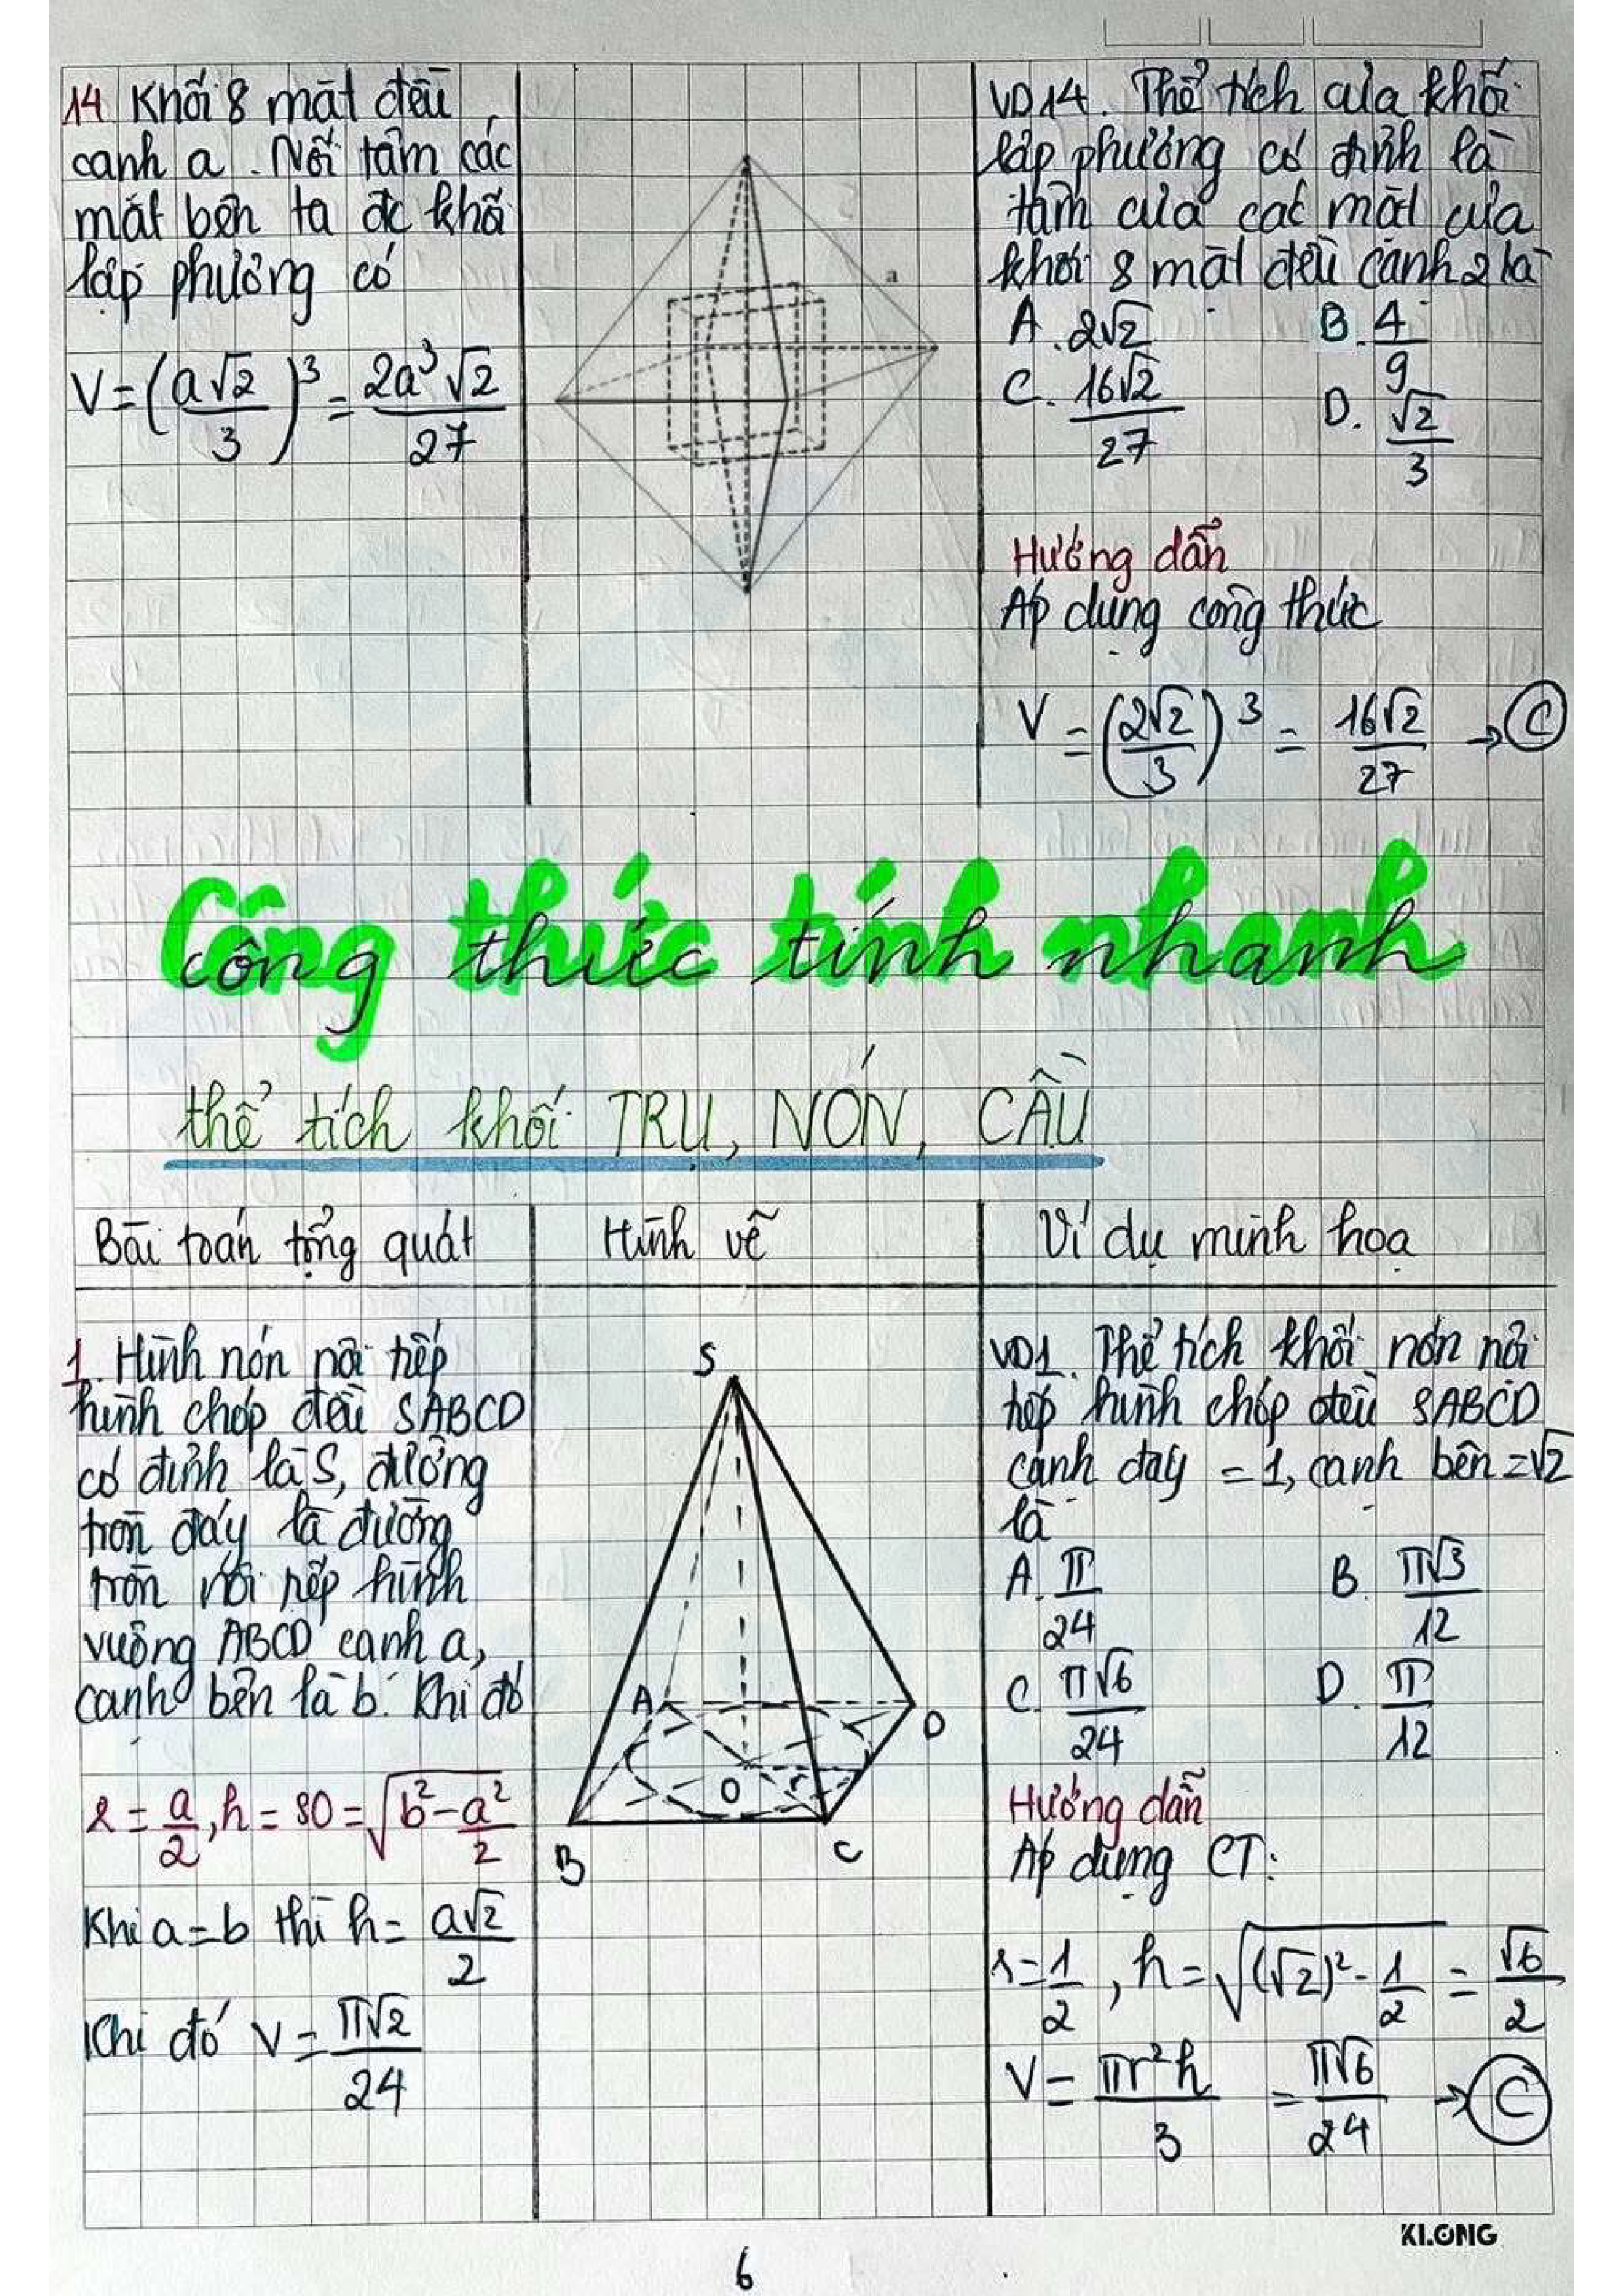 14. Khối 8 mặt đều
cạnh a. Nối tâm các
mặt bên ta đc khối
lập phương có
V = (a√2/3)³ = 2a³√2/27
a
VD14. Thể tích của khối
lập phương có đỉnh là
tâm của các mặt của
khối 8 mặt đều cạnh 2 là
A. 2√2 B. 4/9
C. 16√2/27 D. √2/3
Hướng dẫn
Áp dụng công thức
V = (2√2/3)³ = 16√2/27 → C
Công thức tính nhanh
thể tích khối TRỤ, NÓN, CẦU
Bài toán tổng quát Hình vẽ Ví dụ minh hoạ
1. Hình nón nội tiếp
hình chóp đều SABCD
có đỉnh là S, đường
tròn đáy là đường
tròn nội tiếp hình
vuông ABCD cạnh a,
cạnh bên là b. Khi đó
r = a/2, h = SO = √(b² - a²/2)
Khi a = b thì h = a√2/2
Khi đó V = π√2/24
S
A
D
O r
B
C
VD1. Thể tích khối nón nội
tiếp hình chóp đều SABCD
cạnh đáy = 1, cạnh bên = √2
là
A. π/24 B. π√3/12
C. π√6/24 D. π/12
Hướng dẫn
Áp dụng CT:
r = 1/2, h = √((√2)² - 1/2) = √6/2
V = πr²h/3 = π√6/24 → C
KLONG
6